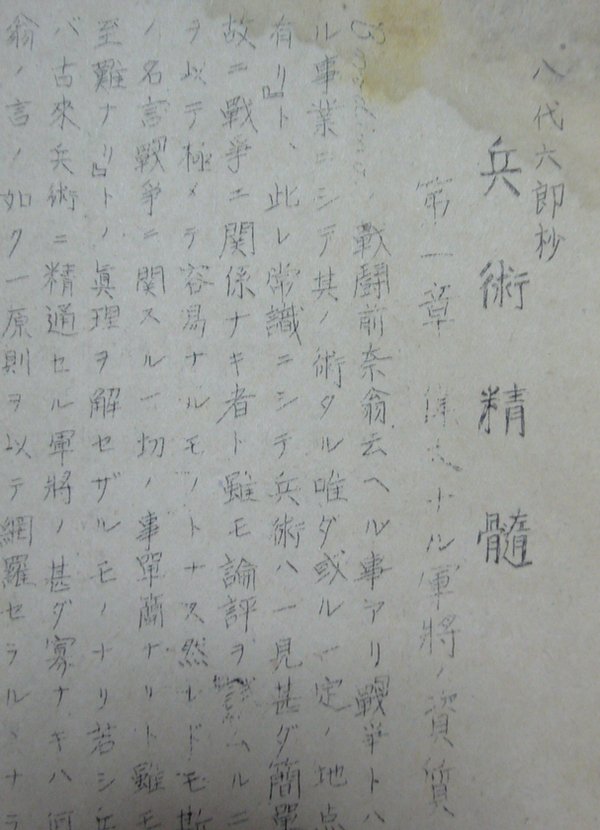 八代六郎抄
兵術精髓
第一章 偉大ナル軍将ノ資質
戰鬪前奈翁云ヘル事アリ『戰爭トハ
ル事業ニシテ其ノ術タル唯ダ或ル一定ノ地点
有リ』ト、此レ常識ニシテ兵術ハ一見甚ダ簡單
故ニ戰爭ニ関係ナキ者ト雖モ論評ヲ試ムルニ
ヲ以テ極メテ容易ナルモノトナス然レドモ斯
ノ名言『戰爭ニ関スル一切ノ事單簡ナリト雖モ
至難ナリ』トノ眞理ヲ解セザルモノナリ若シ兵
バ古來兵術ニ精通セル軍将ノ甚ダ寡ナキハ何
翁ノ言ノ如ク一原則ヲ以テ網羅セラルヽナラ